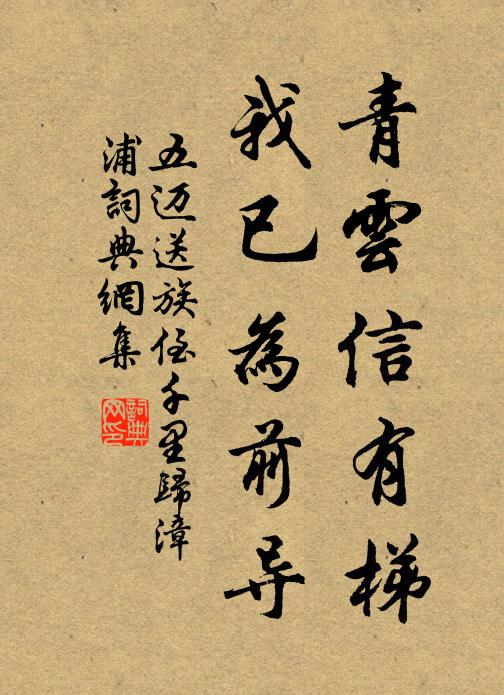 青雲信有梯
我已為前导
五迈送族侄千里歸漳
浦詞典網集
詞典
网印